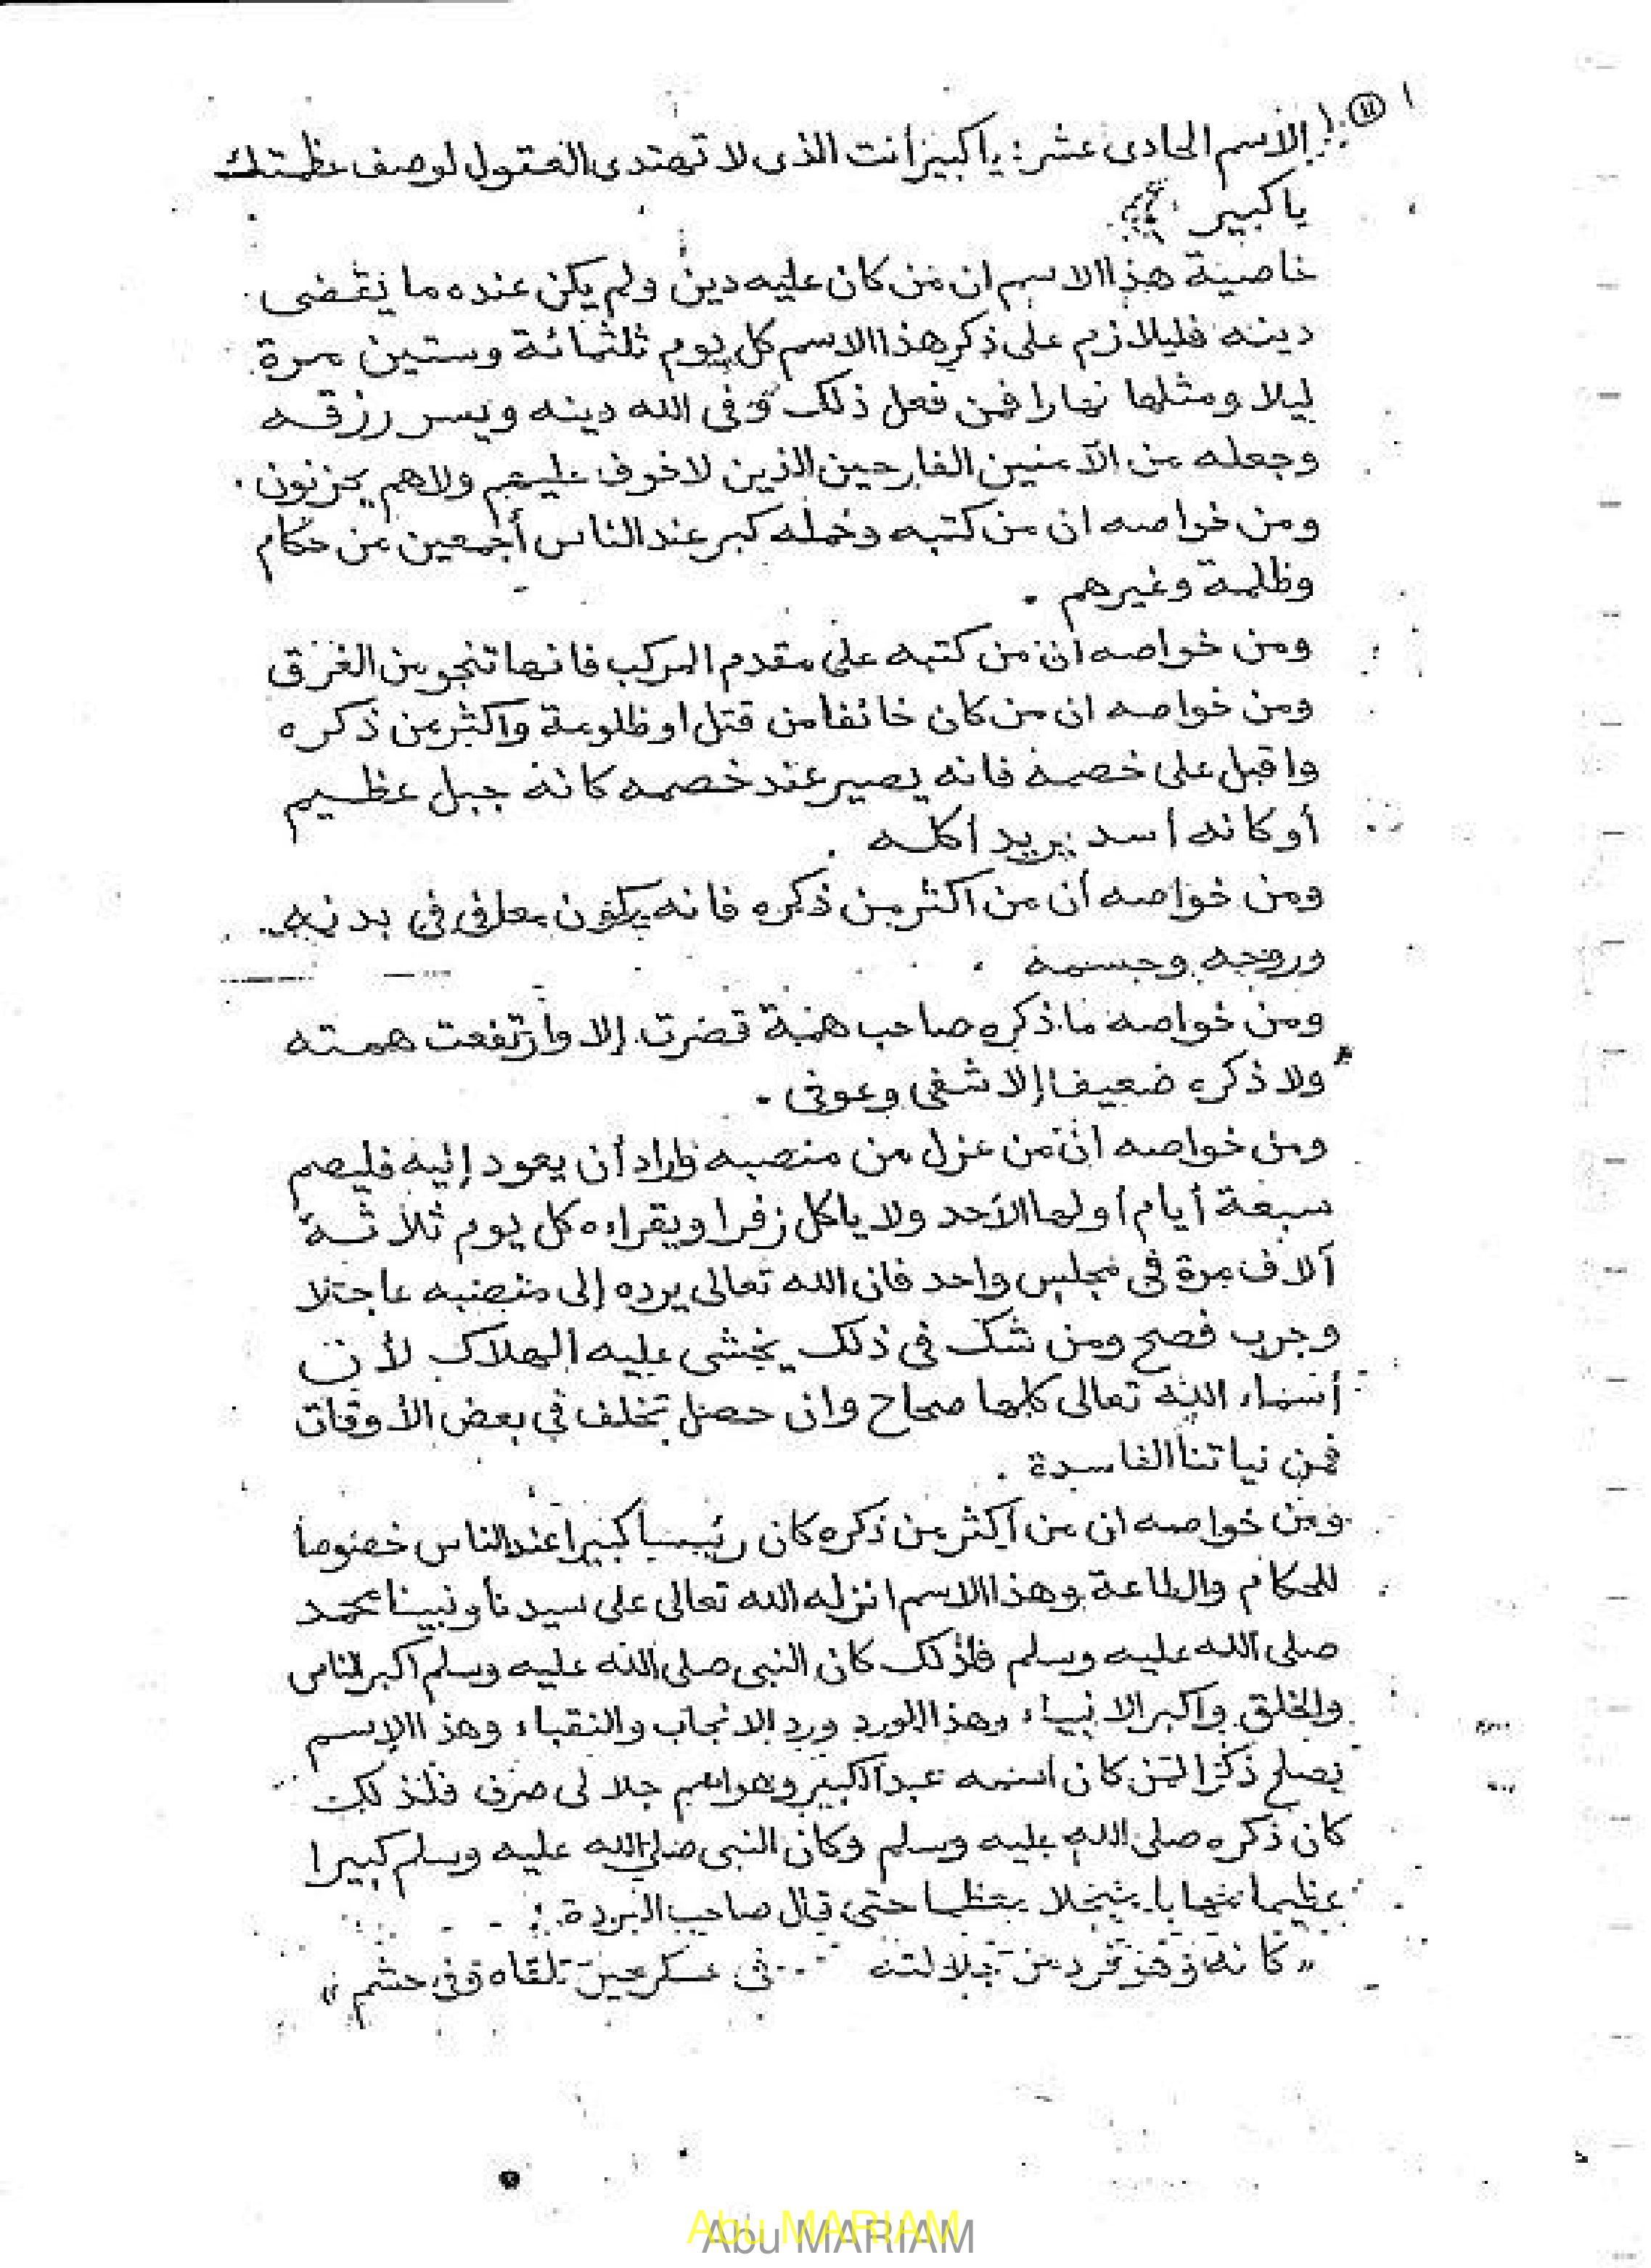 ١١
الاسم الحادى عشر: يا كبير أنت الذى لا تهتدى العقول لوصف عظمتك
يا كبير
خاصية هذا الاسم ان من كان عليه دين ولم يكن عنده ما يقضى
دينه فليلازم على ذكر هذا الاسم كل يوم ثلثمائة وستين مرة
ليلا ومثلها نهارا فمن فعل ذلك وفى الله دينه ويسر رزقه
وجعله من الآمنين الفارحين الذين لا خوف عليهم ولا هم يحزنون .
ومن خواصه ان من كتبه وحمله كبر عند الناس أجمعين من حكام
وظلمة وغيرهم .
ومن خواصه ان من كتبه على مقدم المركب فانها تنجو من الغرق
ومن خواصه ان من كان خائفا من قتل او ظلومة واكثر من ذكره
واقبل على خصمه فانه يصير عند خصمه كانه جبل عظيم
أو كانه اسد يريد اكله .
ومن خواصه أن من اكثر من ذكره فانه يكون معافى فى بدنه
وروحه وجسمه
ومن خواصه ما ذكره صاحب همة قصرت إلا وارتفعت همته
ولا ذكره ضعيف إلا شفى وعوفى .
ومن خواصه ان من عزل من منصبه واراد أن يعود إليه فليصم
سبعة أيام أولها الأحد ولا ياكل زفرا ويقراءه كل يوم ثلاثة
آلاف مرة فى مجلس واحد فان الله تعالى يرده إلى منصبه عاجلا
وجرب فصح ومن شك فى ذلك يخشى عليه الهلاك لأن
أسماء الله تعالى كلها صحاح وان حصل تخلف فى بعض الأوقات
فمن نياتنا الفاسدة .
ومن خواصه ان من أكثر من ذكره كان رئيسا كبيرا عند الناس خصوصا
للحكام والطاعة وهذا الاسم انزله الله تعالى على سيدنا ونبينا محمد
صلى الله عليه وسلم فلذلك كان النبى صلى الله عليه وسلم اكبر الناس
والخلق واكبر الانبياء وهذا الورد ورد الانجاب والنقباء وهذا الاسم
يصلح ذكرا لمن كان اسمه عبد الكبير وهو اسم جلالى صرف فلذلك
كان ذكره صلى الله عليه وسلم وكان النبى صلى الله عليه وسلم كبيرا
عظيما مهابا مبجلا معظما حتى قال صاحب البردة :
" كانه وهو فرد من جلالته فى عسكر حين تلقاه وفى حشم "
Abu MARIAM